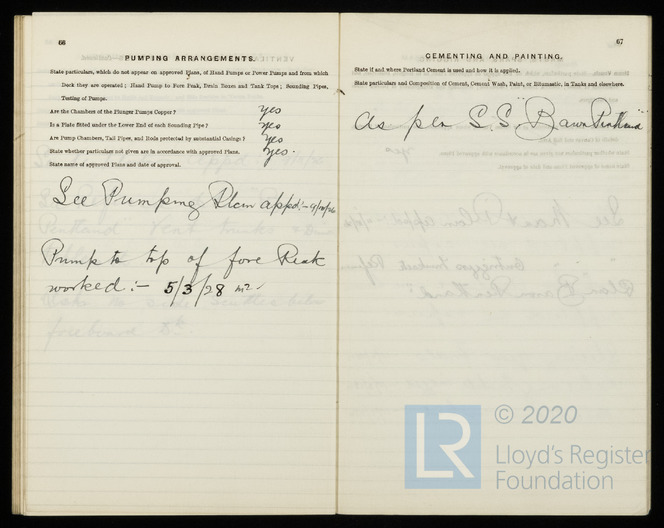 66
PUMPING ARRANGEMENTS.
State particulars, which do not appear on approved Plans, of Hand Pumps or Power Pumps and from which
Deck they are operated; Hand Pump to Fore Peak, Drain Boxes and Tank Tops; Sounding Pipes,
Testing of Pumps.
Are the Chambers of the Plunger Pumps Copper? yes
Is a Plate fitted under the Lower End of each Sounding Pipe? yes
Are Pump Chambers, Tail Pipes, and Rods protected by substantial Casings? yes
State whether particulars not given are in accordance with approved Plans. yes
State name of approved Plans and date of approval.
See Pumping Plan appd:-
Pump to top of fore Peak
worked:- 5/3/28
67
CEMENTING AND PAINTING.
State if and where Portland Cement is used and how it is applied.
State particulars and Composition of Cement, Cement Wash, Paint, or Bitumastic, in Tanks and elsewhere.
As per S.S. "Baron Pentland"
LR
© 2020
Lloyd's Register
Foundation